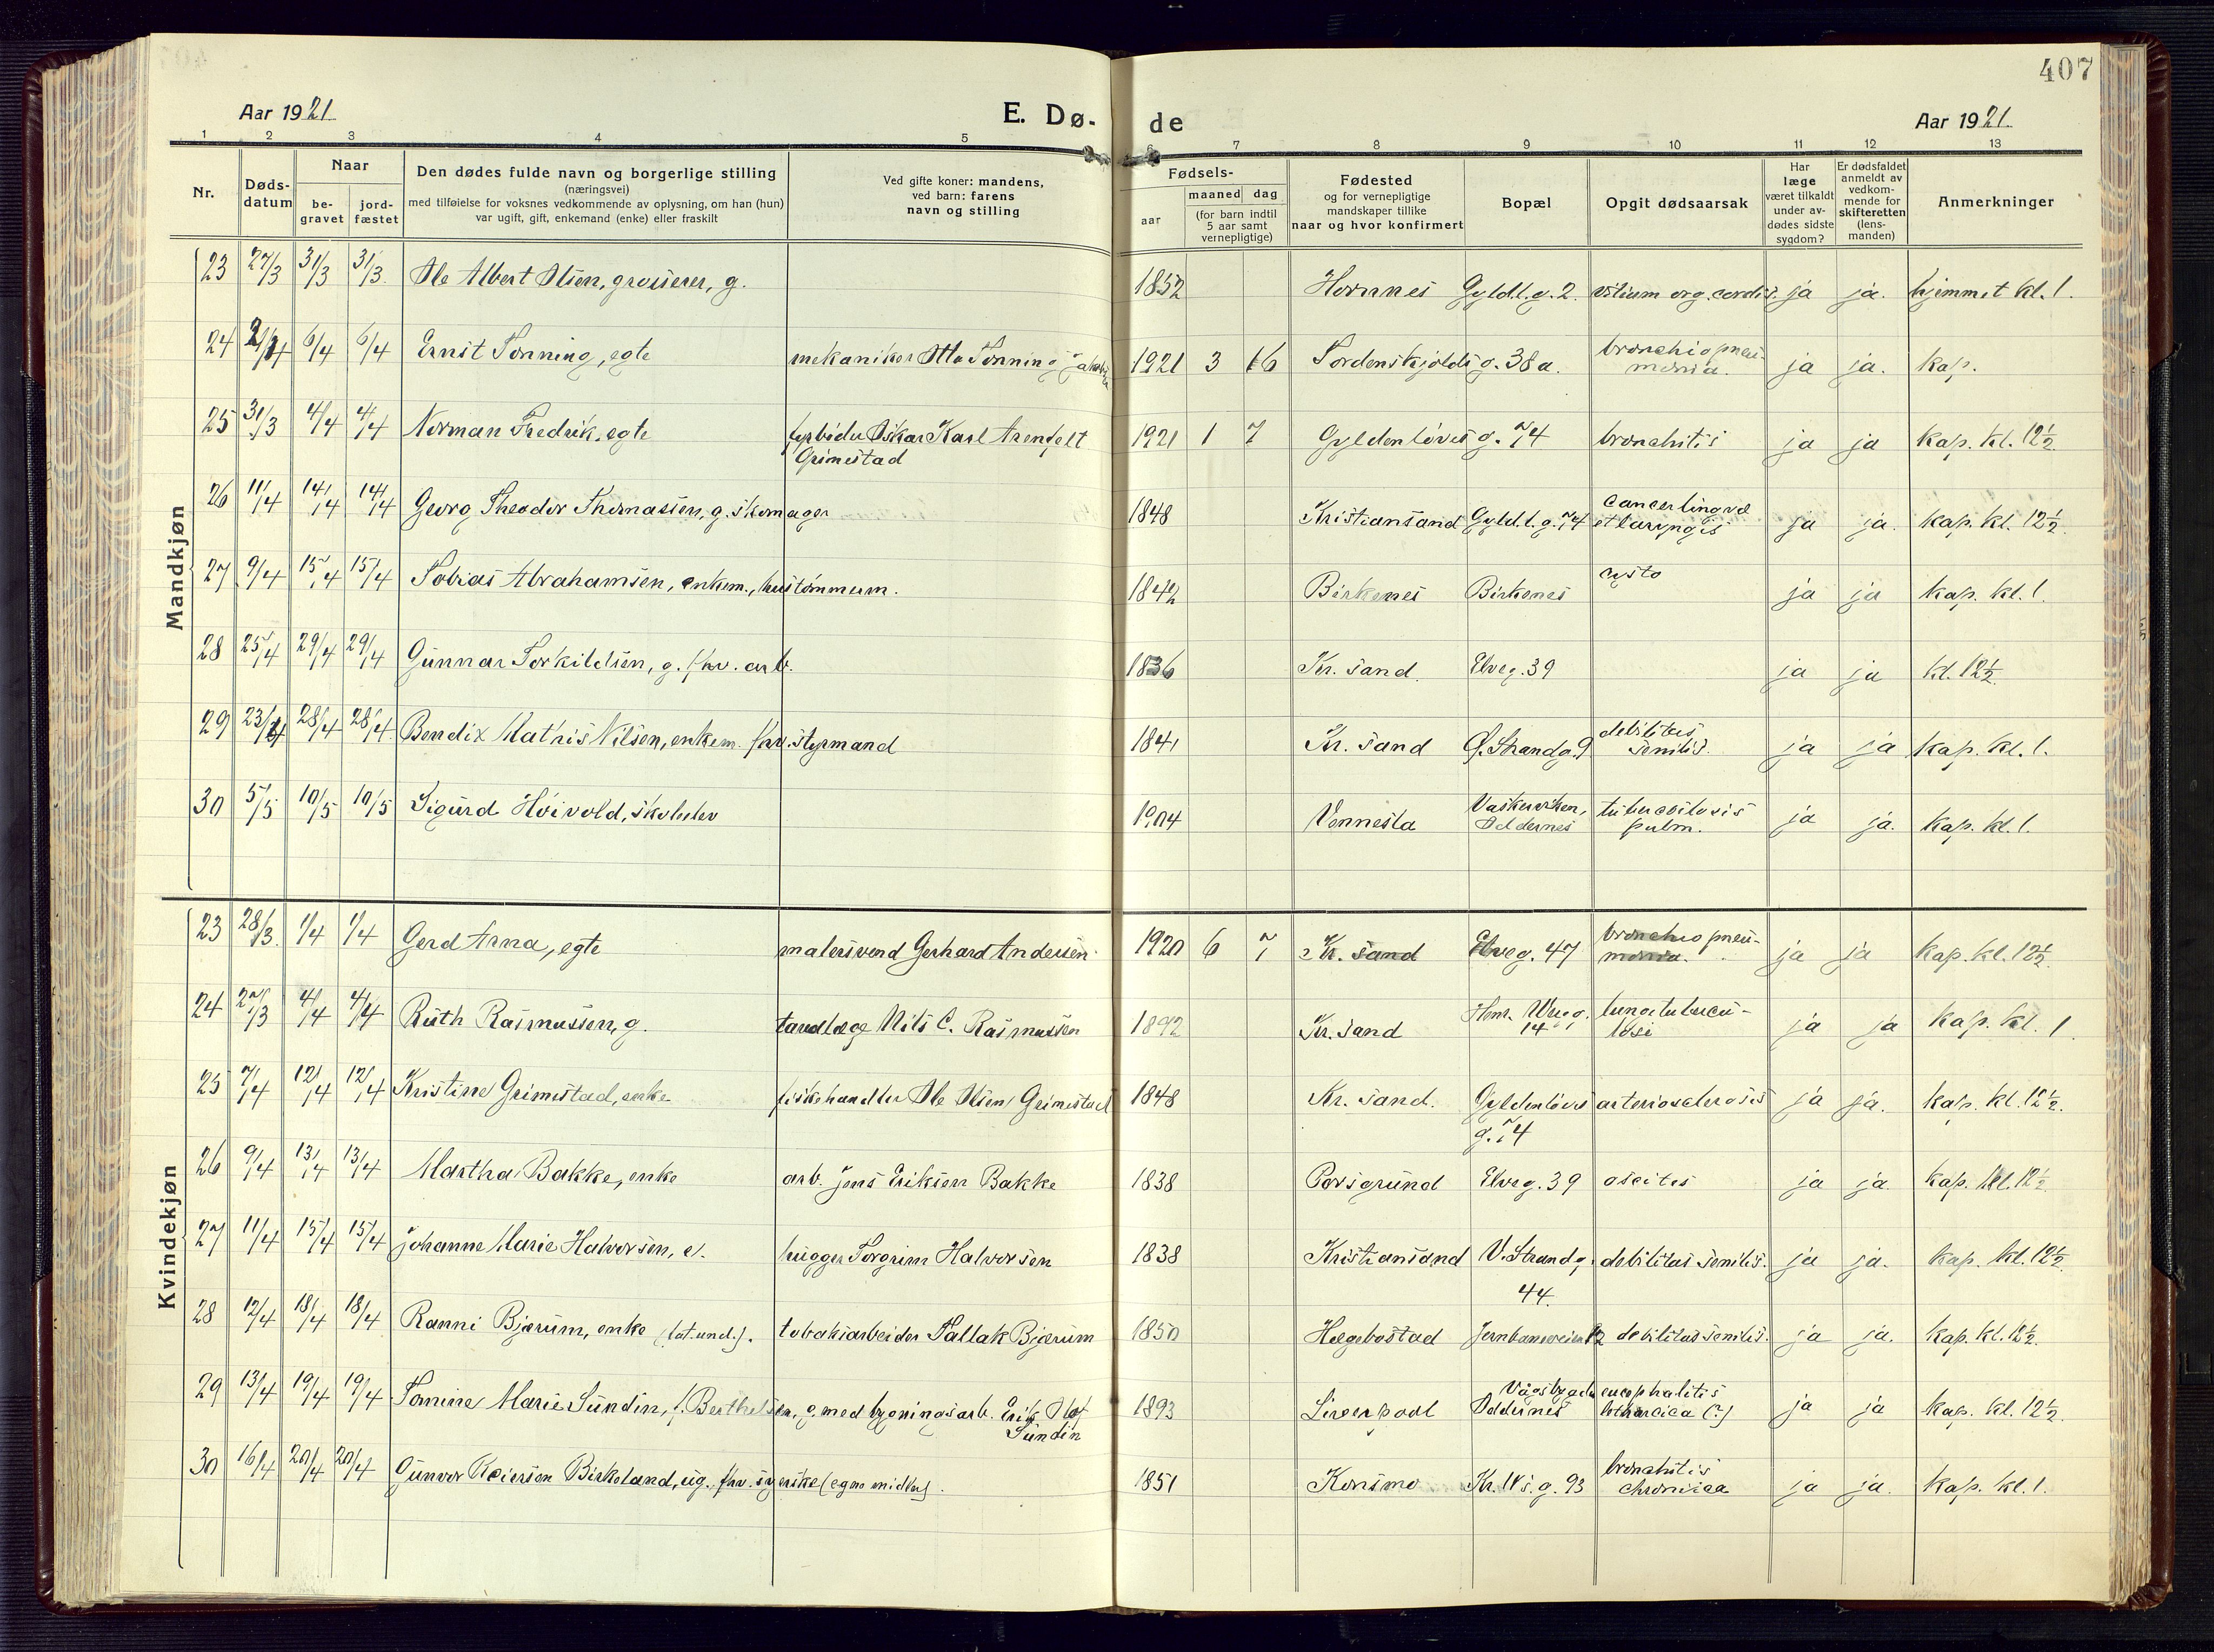 407
Aar 1921
E. Dø-
de
Aar 1921
1 2 3 4 5 6 7 8 9 10 11 12 13
Nr.
Døds-
datum
Naar
be-
gravet
jord-
fæstet
Den dødes fulde navn og borgerlige stilling
(næringsvei)
med tilføielse for voksnes vedkommende av oplysning, om han (hun)
var ugift, gift, enkemand (enke) eller fraskilt
Ved gifte koner: mandens,
ved barn: farens
navn og stilling
Fødsels-
aar
maaned dag
(for barn indtil
5 aar samt
vernepligtige)
Fødested
og for vernepligtige
mandskaper tillike
naar og hvor konfirmert
Bopæl
Opgit dødsaarsak
Har
læge
været tilkaldt
under av-
dødes sidste
sygdom?
Er dødsfaldet
anmeldt av
vedkom-
mende for
skifteretten
(lens-
manden)
Anmerkninger
Mandkjøn
23 27/3 31/3 31/3 Ole Albert Olsen, grosserer, g. 1852 Hornnes Gyld.l.g. 2. vitium org. cordis ja ja. hjemmet kl. 1.
24 6/4 6/4 Ernst Tønning, egte mekaniker Otto Tønning 1921 3 16 Tordenskjolds g. 38a. bronchiopneu-
monia. ja ja. kap.
25 31/3 4/4 4/4 Norman Fredrik, egte fyrbøder Oskar Karl Arenfelt
Grimestad 1921 1 7 Gyldenløves g. 74 bronchitis ja ja kap. kl. 12½.
26 11/4 14/4 14/4 Georg Theodor Thomassen, g. skomager 1848 Kristiansand Gyld.l.g. 74 cancer lingvæ
et laryngis ja ja. kap. kl. 12½.
27 9/4 15/4 15/4 Tobias Abrahamsen, enkem., hustømmerm. 1842 Birkenes Birkenes cysto ja ja kap. kl. 1.
28 25/4 29/4 29/4 Gunnar Torkildsen, g. fhv. arb. 1836 Kr.sand. Elveg. 39 ja ja kl. 12½.
29 23/4 28/4 28/4 Bendix Mathis Nilsen, enkem. fhv. styrmand 1841 Kr.sand Ø. Strandg. 9 debilitas
senilis. ja ja kap. kl. 1.
30 5/5 10/5 10/5 Sigurd Høivold, skoleelev 1904 Vennesla
Oddernes tuberculosis
pulm. ja ja. kap. kl. 1.
Kvindekjøn
23 28/3 1/4 1/4 Gerd Anna, egte malersvend Gerhard Andersen. 1920 6 7 Kr.sand Elveg. 47 bronchiopneu-
monia. ja ja kap. kl. 12½.
24 27/3 4/4 4/4 Ruth Rasmussen, g. tandlæge Nils C. Rasmussen 1892 Kr.sand
14 lungetubercu-
losi ja ja kap. kl. 1
25 7/4 12/4 12/4 Kristine Grimestad, enke fiskehandler Ole Olsen Grimestad 1848 Kr.sand. Gyldenløves
g. 74 arteriosclerosis ja ja. kap. kl. 12½.
26 9/4 13/4 13/4 Martha Bakke, enke arb. Jens Eriksen Bakke 1838 Porsgrund Elveg. 39 ascites ja ja. kap. kl. 12½
27 11/4 15/4 15/4 Johanne Marie Halvorsen, e. hugger Torgrim Halvorsen 1838 Kristiansand V. Strandg.
44. debilitas senilis. ja ja. kap. kl. 12½.
28 12/4 18/4 18/4 Ranni Bjærum, enke (fat.und.). tobaksarbeider Tallak Bjærum 1850 Hægebostad Jernbaneveien 12 debilitas senilis. ja ja. kap. kl. 12½.
29 13/4 19/4 19/4 Tomine Marie Sundin, f. Berthelsen, g. med bygningsarb. Erik Olof
Sundin 1893 Liverpool Vågsbygd
Oddernes encephalitis
lethargica (?) ja ja kap. kl. 12½.
30 16/4 20/4 20/4 Gunvor Reiersen Birkeland, ug. fhv. syerske (egne midler). 1851 Konsmo Kr. IVs. g. 93 bronchitis
chronica ja ja. kap. kl. 1.